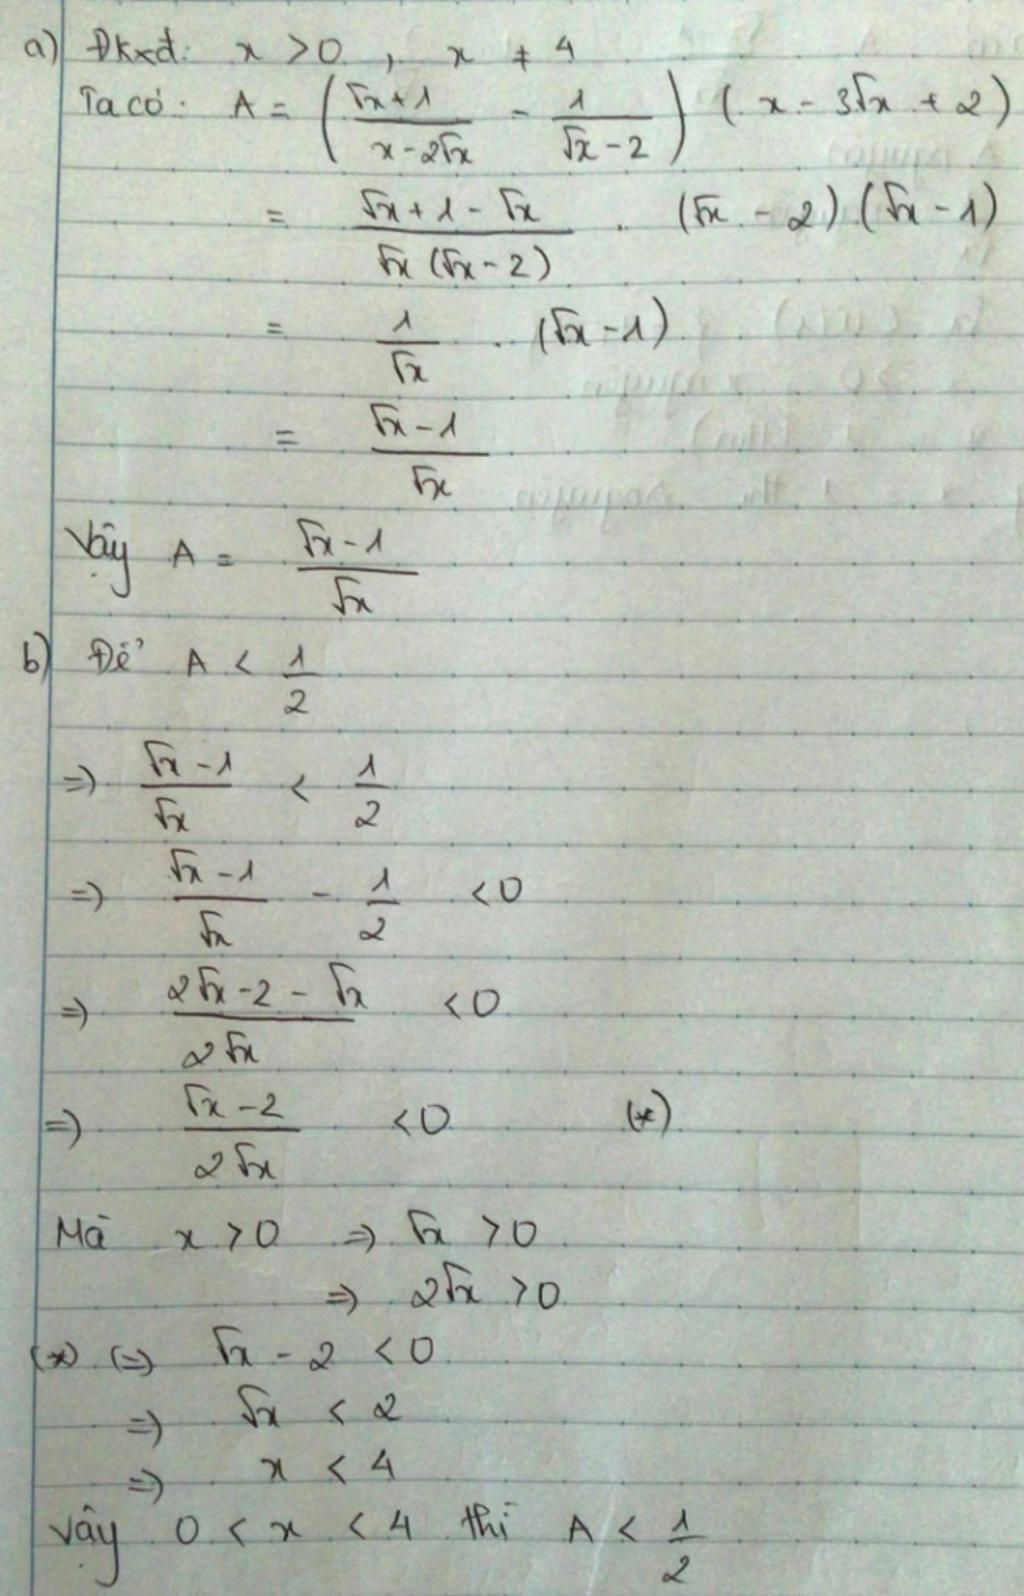 a) Đkxđ: x > 0 , x ≠ 4
Ta có: A = ( (√x + 1)/(x - 2√x) - 1/(√x - 2) ) ( x - 3√x + 2)
= (√x + 1 - √x)/(√x (√x - 2)) . (√x - 2) (√x - 1)
= 1/√x . (√x - 1)
= (√x - 1)/√x
Vậy A = (√x - 1)/√x
b) Để A < 1/2
=> (√x - 1)/√x < 1/2
=> (√x - 1)/√x - 1/2 < 0
=> (2√x - 2 - √x)/(2√x) < 0
=> (√x - 2)/(2√x) < 0 (*)
Mà x > 0 => √x > 0
=> 2√x > 0
(*) (=) √x - 2 < 0
=> √x < 2
=> x < 4
Vậy 0 < x < 4 thì A < 1/2